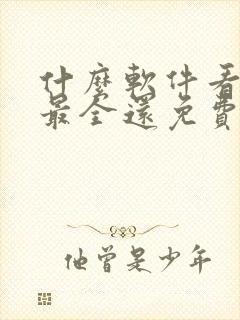 什麼軟件看
最全還免費
他曾是少年